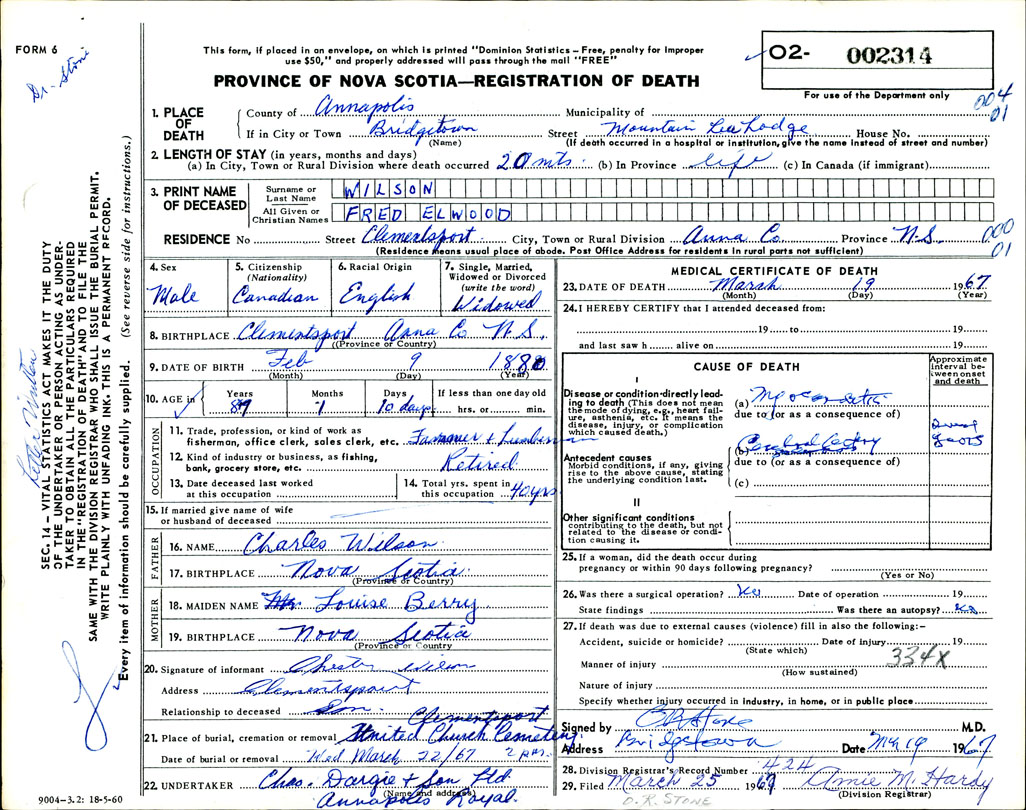 FORM 6
Dr. Stone
This form, if placed in an envelope, on which is printed "Dominion Statistics – Free, penalty for improper
use $50," and properly addressed will pass through the mail "FREE"
PROVINCE OF NOVA SCOTIA—REGISTRATION OF DEATH
O2- 002314
For use of the Department only
004
01
1. PLACE OF DEATH
County of Annapolis Municipality of
If in City or Town Bridgetown Street Mountain Lea Lodge House No.
(Name) (If death occurred in a hospital or institution, give the name instead of street and number)
2. LENGTH OF STAY (in years, months and days)
(a) In City, Town or Rural Division where death occurred 20 mts. (b) In Province life (c) In Canada (if immigrant)
3. PRINT NAME OF DECEASED
Surname or Last Name WILSON
All Given or Christian Names FRED ELWOOD
RESIDENCE No Street Clementsport City, Town or Rural Division Anna Co. Province N.S.
(Residence means usual place of abode. Post Office Address for residents in rural parts not sufficient)
000
01
4. Sex Male
5. Citizenship (Nationality) Canadian
6. Racial Origin English
7. Single, Married, Widowed or Divorced (write the word) Widowed
8. BIRTHPLACE Clementsport Anna Co N.S.
(Province or Country)
9. DATE OF BIRTH Feb 9 1880
(Month) (Day) (Year)
10. AGE in Years Months 1 Days 10 days If less than one day old hrs. or min.
OCCUPATION
11. Trade, profession, or kind of work as
fisherman, office clerk, sales clerk, etc. Farmer & Lumberman
12. Kind of industry or business, as fishing,
bank, grocery store, etc. Retired
13. Date deceased last worked
at this occupation
14. Total yrs. spent in
this occupation 40 yrs
15. If married give name of wife
or husband of deceased
FATHER
16. NAME Charles Wilson
17. BIRTHPLACE Nova Scotia
(Province or Country)
MOTHER
18. MAIDEN NAME Louise Berry
19. BIRTHPLACE Nova Scotia
(Province or Country
20. Signature of informant Chester Wilson
Address Clementsport
Relationship to deceased Son
21. Place of burial, cremation or removal Clementsport United Church Cemetery
Date of burial or removal Wed March 22/67 2 pm.
22. UNDERTAKER Chas. Dargie & Son Ltd
(Name and address)
Annapolis Royal.
9004–3.2: 18-5-60
MEDICAL CERTIFICATE OF DEATH
23. DATE OF DEATH March 19 1967
(Month) (Day) (Year)
24. I HEREBY CERTIFY that I attended deceased from:
19 to 19
and last saw h alive on 19
CAUSE OF DEATH
Approximate interval between onset and death
I
Disease or condition directly leading to death (This does not mean
the mode of dying, e.g., heart failure, asthenia, etc. It means the
disease, injury, or complication
which caused death.)
(a)
due to (or as a consequence of)
Antecedent causes
Morbid conditions, if any, giving
rise to the above cause, stating
the underlying condition last.
(b) Cerebral
due to (or as a consequence of)
(c)
years
II
Other significant conditions
contributing to the death, but not
related to the disease or condition causing it.
25. If a woman, did the death occur during
pregnancy or within 90 days following pregnancy?
(Yes or No)
26. Was there a surgical operation? No Date of operation 19
State findings Was there an autopsy? No
27. If death was due to external causes (violence) fill in also the following:–
Accident, suicide or homicide? Date of injury 19
(State which)
334X
Manner of injury
(How sustained)
Nature of injury
Specify whether injury occurred in industry, in home, or in public place
Signed by Stone M.D.
Address Bridgetown Date Mar 19 1967
28. Division Registrar's Record Number 424
29. Filed March 25 1967 Annie M. Hardy
(Division Registrar)
O.K. STONE
Letter Written
SEC. 14 – VITAL STATISTICS ACT MAKES IT THE DUTY
OF THE UNDERTAKER OR PERSON ACTING AS UNDERTAKER TO OBTAIN ALL THE PARTICULARS REQUIRED
IN THE "REGISTRATION OF DEATH" AND TO FILE THE
SAME WITH THE DIVISION REGISTRAR WHO SHALL ISSUE THE BURIAL PERMIT.
WRITE PLAINLY WITH UNFADING INK. THIS IS A PERMANENT RECORD.
Every item of information should be carefully supplied. (See reverse side for instructions.)